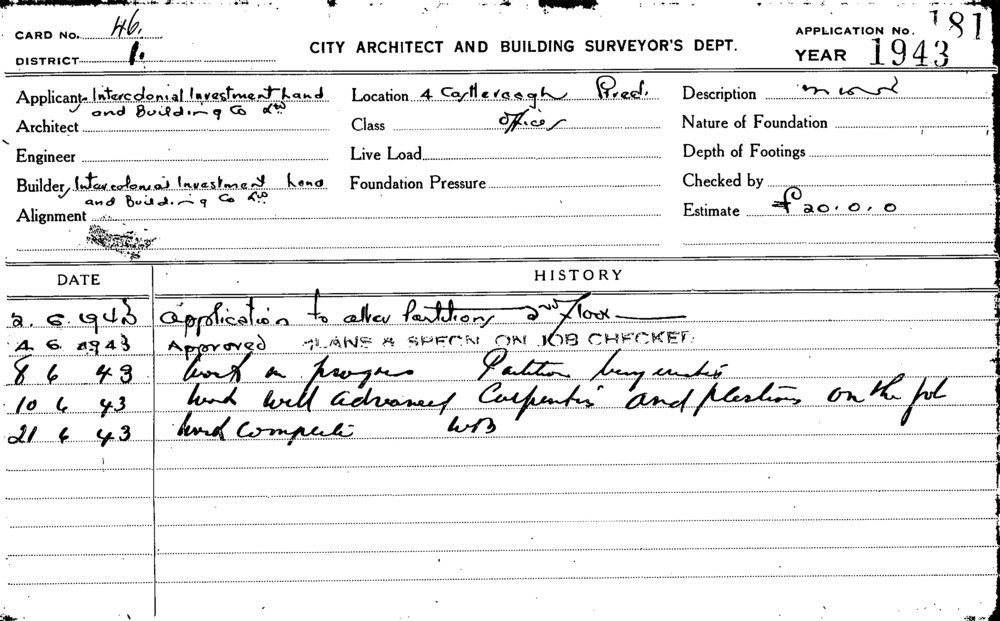 CARD No. 46.
DISTRICT 1.
CITY ARCHITECT AND BUILDING SURVEYOR'S DEPT.
APPLICATION No. 181
YEAR 1943
Applicant Intercolonial Investment Land
and Building Co Ltd
Location 4 Castlereagh
Description
Architect
Class Offices
Nature of Foundation
Engineer
Live Load
Depth of Footings
Builder Intercolonial Investment Land
and Building Co Ltd
Foundation Pressure
Checked by
Alignment
Estimate £20.0.0
DATE HISTORY
2. 6. 1943 Application to alter Partitions 2nd Floor
4 6 1943 Approved PLANS & SPECN ON JOB CHECKED.
8 6 43 Work in progress Partition being
10 6 43 Work well advanced Carpenters and plasterers on the job
21 6 43 Work complete WB